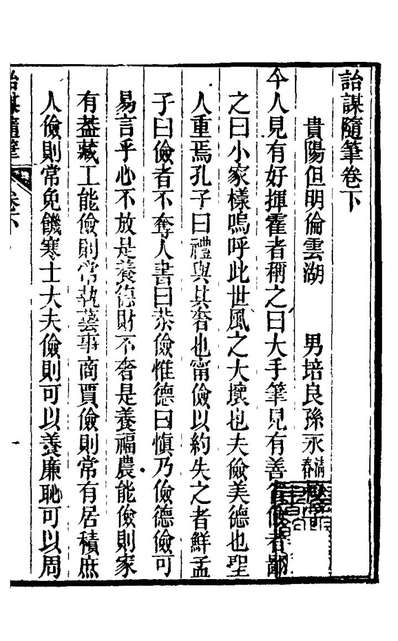 詒謀隨筆卷下
貴陽但明倫雲湖　男培良孫永清春
今人見有好揮霍者稱之曰大手筆見有善者鄙
之曰小家樣嗚呼此世風之大壞也夫儉美德也聖
人重焉孔子曰禮與其奢也甯儉以約失之者鮮孟
子曰儉者不奪人書曰恭儉惟德曰慎乃儉德儉可
易言乎心不放是養德財不奢是養福農能儉則家
有蓋藏工能儉則常執藝事商賈儉則常有居積庶
人儉則常免饑寒士大夫儉則可以養廉恥可以周
詒謀隨筆　卷下　一